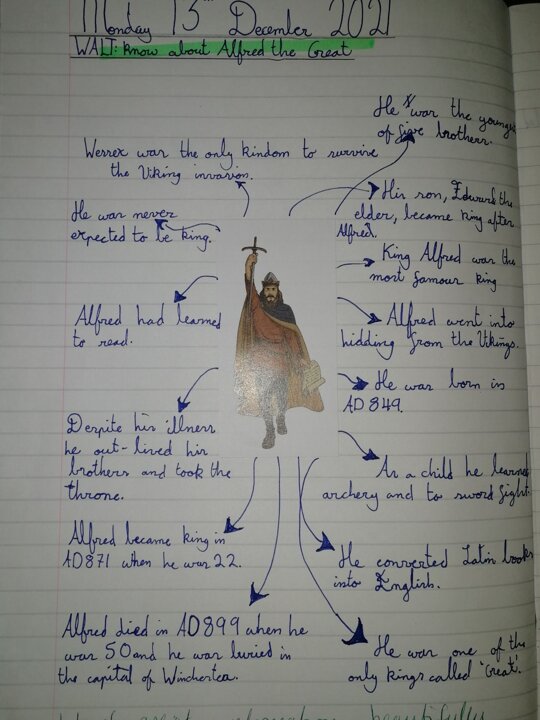 Monday 13th December 2021
WALT: know about Alfred the Great
He was the youngest
of five brothers.
Wessex was the only kindom to survive
the Viking invasion.
His son, Edward the
elder, became king after
Alfred.
He was never
expected to be king.
King Alfred was the
most famous king
Alfred had learned
to read.
Alfred went into
hidding from the Vikings.
He was born in
AD 849.
Despite his illness
he out-lived his
brothers and took the
throne.
As a child he learned
archery and to sword fight.
Alfred became king in
AD871 when he was 22.
He converted Latin books
into English.
Alfred died in AD899 when he
was 50 and he was buried in
the capital of Winchestea.
He was one of the
only kings called 'Great'.
beautifully